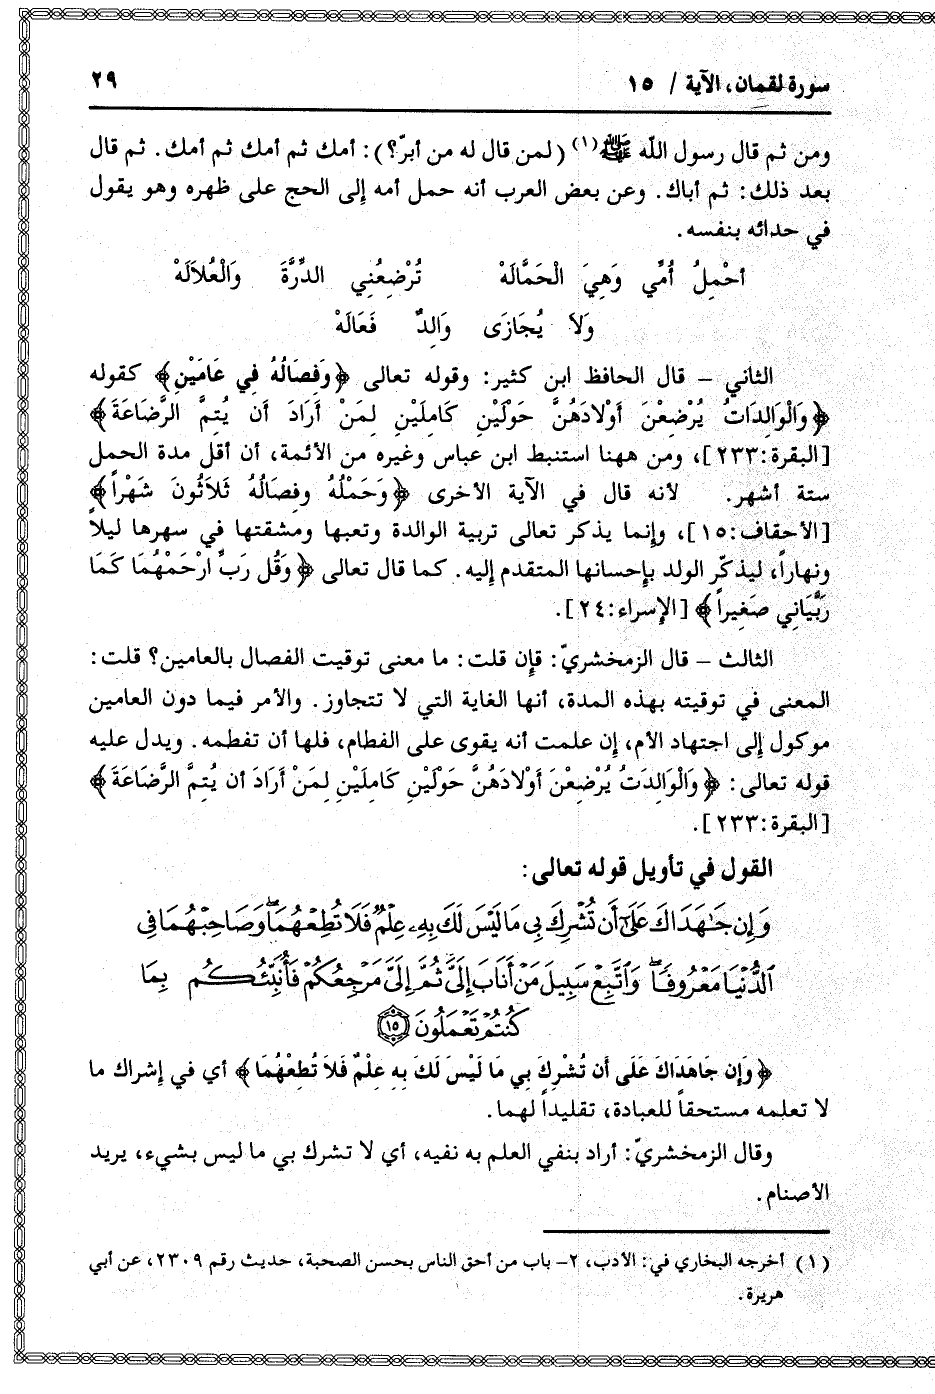 سورة لقمان، الآية / ١٥
٢٩
ومن ثم قال رسول الله ﷺ(١) (لمن قال له من أبرّ؟): أمك ثم أمك ثم أمك. ثم قال
بعد ذلك: ثم أباك. وعن بعض العرب أنه حمل أمه إلى الحج على ظهره وهو يقول
في حدائه بنفسه.
أحْمِلُ أُمِّي وَهِيَ الْحَمَّالَهْ تُرْضِعُنِي الدِّرَّةَ وَالْعُلاَلَهْ
وَلاَ يُجَازَى وَالِدٌ فَعَالَهْ
الثاني – قال الحافظ ابن كثير: وقوله تعالى ﴿وَفِصَالُهُ فِي عَامَيْنِ﴾ كقوله
﴿وَالْوَالِدَاتُ يُرْضِعْنَ أَوْلادَهُنَّ حَوْلَيْنِ كَامِلَيْنِ لِمَنْ أَرَادَ أَن يُتِمَّ الرَّضَاعَةَ﴾
[البقرة:٢٣٣]، ومن ههنا استنبط ابن عباس وغيره من الأئمة، أن أقل مدة الحمل
ستة أشهر. لأنه قال في الآية الأخرى ﴿وَحَمْلُهُ وفِصَالُهُ ثَلاَثُونَ شَهْراً﴾
[الأحقاف:١٥]، وإنما يذكر تعالى تربية الوالدة وتعبها ومشقتها في سهرها ليلاً
ونهاراً، ليذكّر الولد بإحسانها المتقدم إليه. كما قال تعالى ﴿وَقُل رَبِّ ارْحَمْهُمَا كَمَا
رَبَّيَانِي صَغِيراً﴾ [الإسراء:٢٤].
الثالث – قال الزمخشريّ: فإن قلت: ما معنى توقيت الفصال بالعامين؟ قلت:
المعنى في توقيته بهذه المدة، أنها الغاية التي لا تتجاوز. والأمر فيما دون العامين
موكول إلى اجتهاد الأم، إن علمت أنه يقوى على الفطام، فلها أن تفطمه. ويدل عليه
قوله تعالى: ﴿وَالْوَالِدَتُ يُرْضِعْنَ أَوْلادَهُنَّ حَوْلَيْنِ كَامِلَيْنِ لِمَنْ أَرَادَ أن يُتِمَّ الرَّضَاعَةَ﴾
[البقرة:٢٣٣].
القول في تأويل قوله تعالى:
وَإِن جَـٰهَدَاكَ عَلَىٰٓ أَن تُشْرِكَ بِى مَا لَيْسَ لَكَ بِهِۦ عِلْمٌ فَلَا تُطِعْهُمَا ۖ وَصَاحِبْهُمَا فِى
ٱلدُّنْيَا مَعْرُوفًا ۖ وَٱتَّبِعْ سَبِيلَ مَنْ أَنَابَ إِلَىَّ ۚ ثُمَّ إِلَىَّ مَرْجِعُكُمْ فَأُنَبِّئُكُم بِمَا
كُنتُمْ تَعْمَلُونَ ١٥
﴿وَإِن جَاهَدَاكَ عَلَى أَن تُشْرِكَ بِي مَا لَيْسَ لَكَ بِهِ عِلْمٌ فَلاَ تُطِعْهُمَا﴾ أي في إشراك ما
لا تعلمه مستحقاً للعبادة، تقليداً لهما.
وقال الزمخشريّ: أراد بنفي العلم به نفيه، أي لا تشرك بي ما ليس بشيء، يريد
الأصنام.
(١) أخرجه البخاري في: الأدب، ٢– باب من أحق الناس بحسن الصحبة، حديث رقم ٢٣٠٩، عن أبي
هريرة.